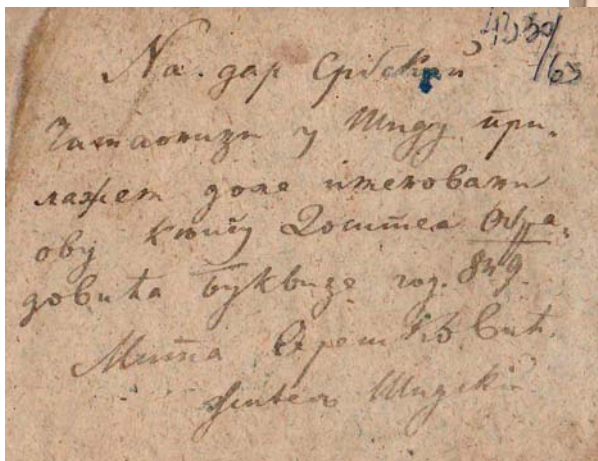 4330/63
На дар Србской
Читаоници у Шиду при-
лажем доле именовани
ову книгу Доситеа Обра-
довића буквице год. 849.
Мита
житель Шидскій